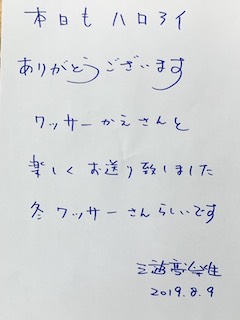 本日も ハロライ
ありがとうございます
ワッサーかえさんと
楽しく お送り致しました
冬 ワッサーさんらしいです
2019.8.9